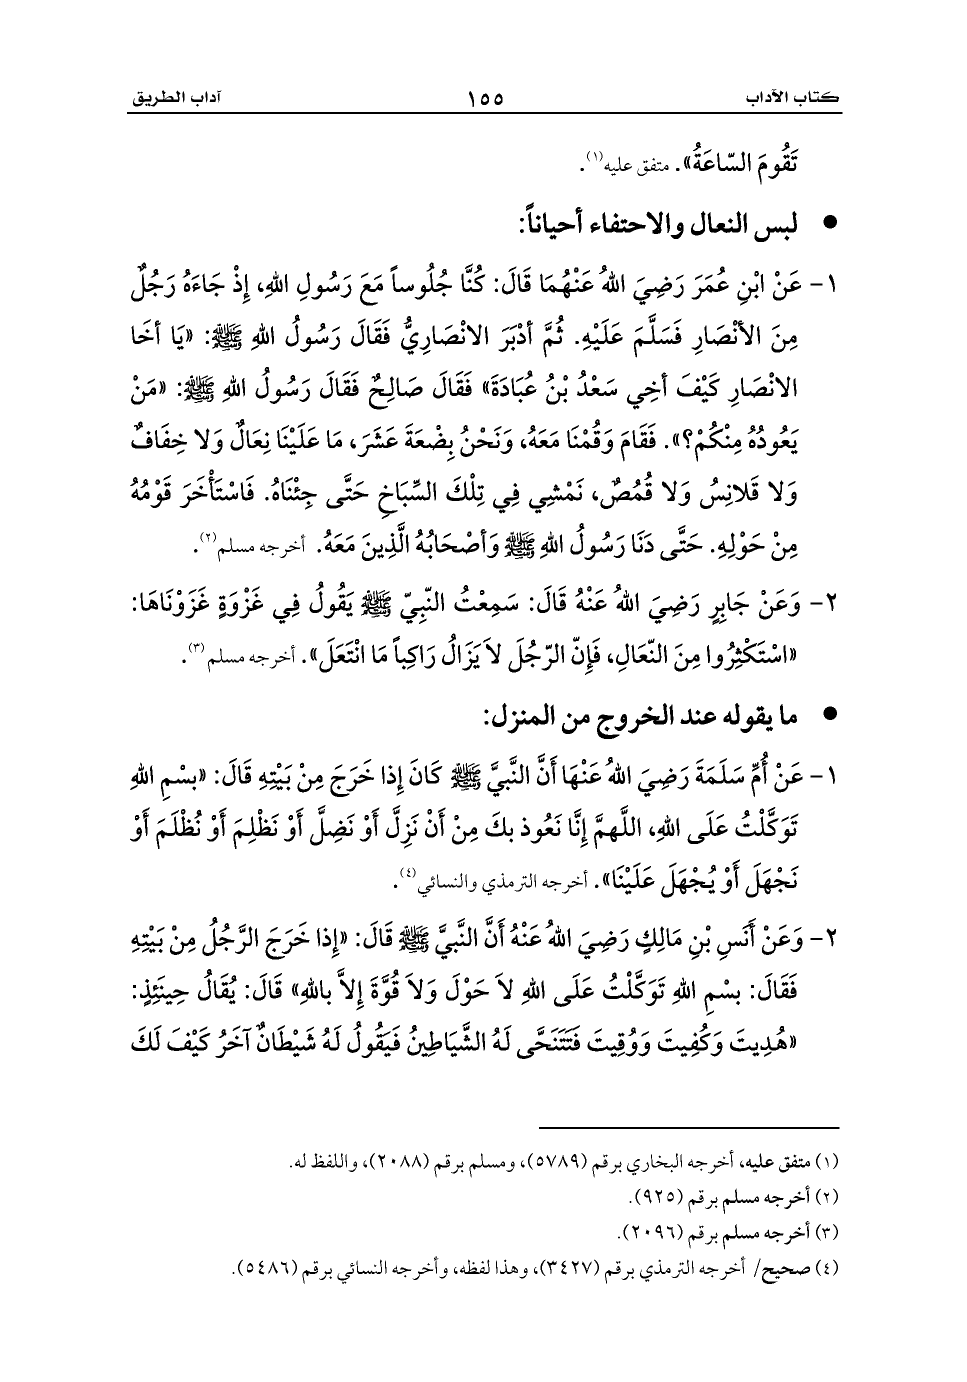 كتاب الآداب ١٥٥ آداب الطريق
تَقُومَ السّاعَةُ». متفق عليه(١).
● لبس النعال والاحتفاء أحياناً:
١- عَنْ ابْنِ عُمَرَ رَضِيَ اللهُ عَنْهُمَا قَالَ: كُنَّا جُلُوساً مَعَ رَسُولِ اللهِ، إذْ جَاءَهُ رَجُلٌ
مِنَ الأنْصَارِ فَسَلَّمَ عَلَيْهِ. ثُمَّ أدْبَرَ الانْصَارِيُّ فَقَالَ رَسُولُ اللهِ ﷺ: «يَا أخَا
الانْصَارِ كَيْفَ أخِي سَعْدُ بْنُ عُبَادَةَ» فَقَالَ صَالِحٌ فَقَالَ رَسُولُ اللهِ ﷺ: «مَنْ
يَعُودُهُ مِنْكُمْ؟». فَقَامَ وَقُمْنَا مَعَهُ، وَنَحْنُ بِضْعَةَ عَشَرَ، مَا عَلَيْنَا نِعَالٌ وَلا خِفَافٌ
وَلا قَلانِسُ وَلا قُمُصٌ، نَمْشِي فِي تِلْكَ السِّبَاخِ حَتَّى جِئْنَاهُ. فَاسْتَأْخَرَ قَوْمُهُ
مِنْ حَوْلِهِ. حَتَّى دَنَا رَسُولُ اللهِ ﷺ وَأصْحَابُهُ الَّذِينَ مَعَهُ. أخرجه مسلم(٢).
٢- وَعَنْ جَابِرٍ رَضِيَ اللهُ عَنْهُ قَالَ: سَمِعْتُ النّبِيّ ﷺ يَقُولُ فِي غَزْوَةٍ غَزَوْنَاهَا:
«اسْتَكْثِرُوا مِنَ النّعَالِ، فَإِنّ الرّجُلَ لاَ يَزَالُ رَاكِباً مَا انْتَعَلَ». أخرجه مسلم(٣).
● ما يقوله عند الخروج من المنزل:
١- عَنْ أُمِّ سَلَمَةَ رَضِيَ اللهُ عَنْهَا أَنَّ النَّبِيَّ ﷺ كَانَ إِذا خَرَجَ مِنْ بَيْتِهِ قَالَ: «بسْمِ اللهِ
تَوَكَّلْتُ عَلَى اللهِ، اللَّهمَّ إِنَّا نَعُوذ بكَ مِنْ أَنْ نَزِلَّ أَوْ نَضِلَّ أَوْ نَظْلِمَ أَوْ نُظْلَمَ أَوْ
نَجْهَلَ أَوْ يُجْهَلَ عَلَيْنَا». أخرجه الترمذي والنسائي(٤).
٢- وَعَنْ أَنَسِ بْنِ مَالِكٍ رَضِيَ اللهُ عَنْهُ أَنَّ النَّبِيَّ ﷺ قَالَ: «إِذا خَرَجَ الرَّجُلُ مِنْ بَيْتِهِ
فَقَالَ: بسْمِ اللهِ تَوَكَّلْتُ عَلَى اللهِ لاَ حَوْلَ وَلاَ قُوَّةَ إِلاَّ باللهِ» قَالَ: يُقَالُ حِينَئِذٍ:
«هُدِيتَ وَكُفِيتَ وَوُقِيتَ فَتَتَنَحَّى لَهُ الشَّيَاطِينُ فَيَقُولُ لَهُ شَيْطَانٌ آخَرُ كَيْفَ لَكَ
(١) متفق عليه، أخرجه البخاري برقم (٥٧٨٩)، ومسلم برقم (٢٠٨٨)، واللفظ له.
(٢) أخرجه مسلم برقم (٩٢٥).
(٣) أخرجه مسلم برقم (٢٠٩٦).
(٤) صحيح/ أخرجه الترمذي برقم (٣٤٢٧)، وهذا لفظه، وأخرجه النسائي برقم (٥٤٨٦).